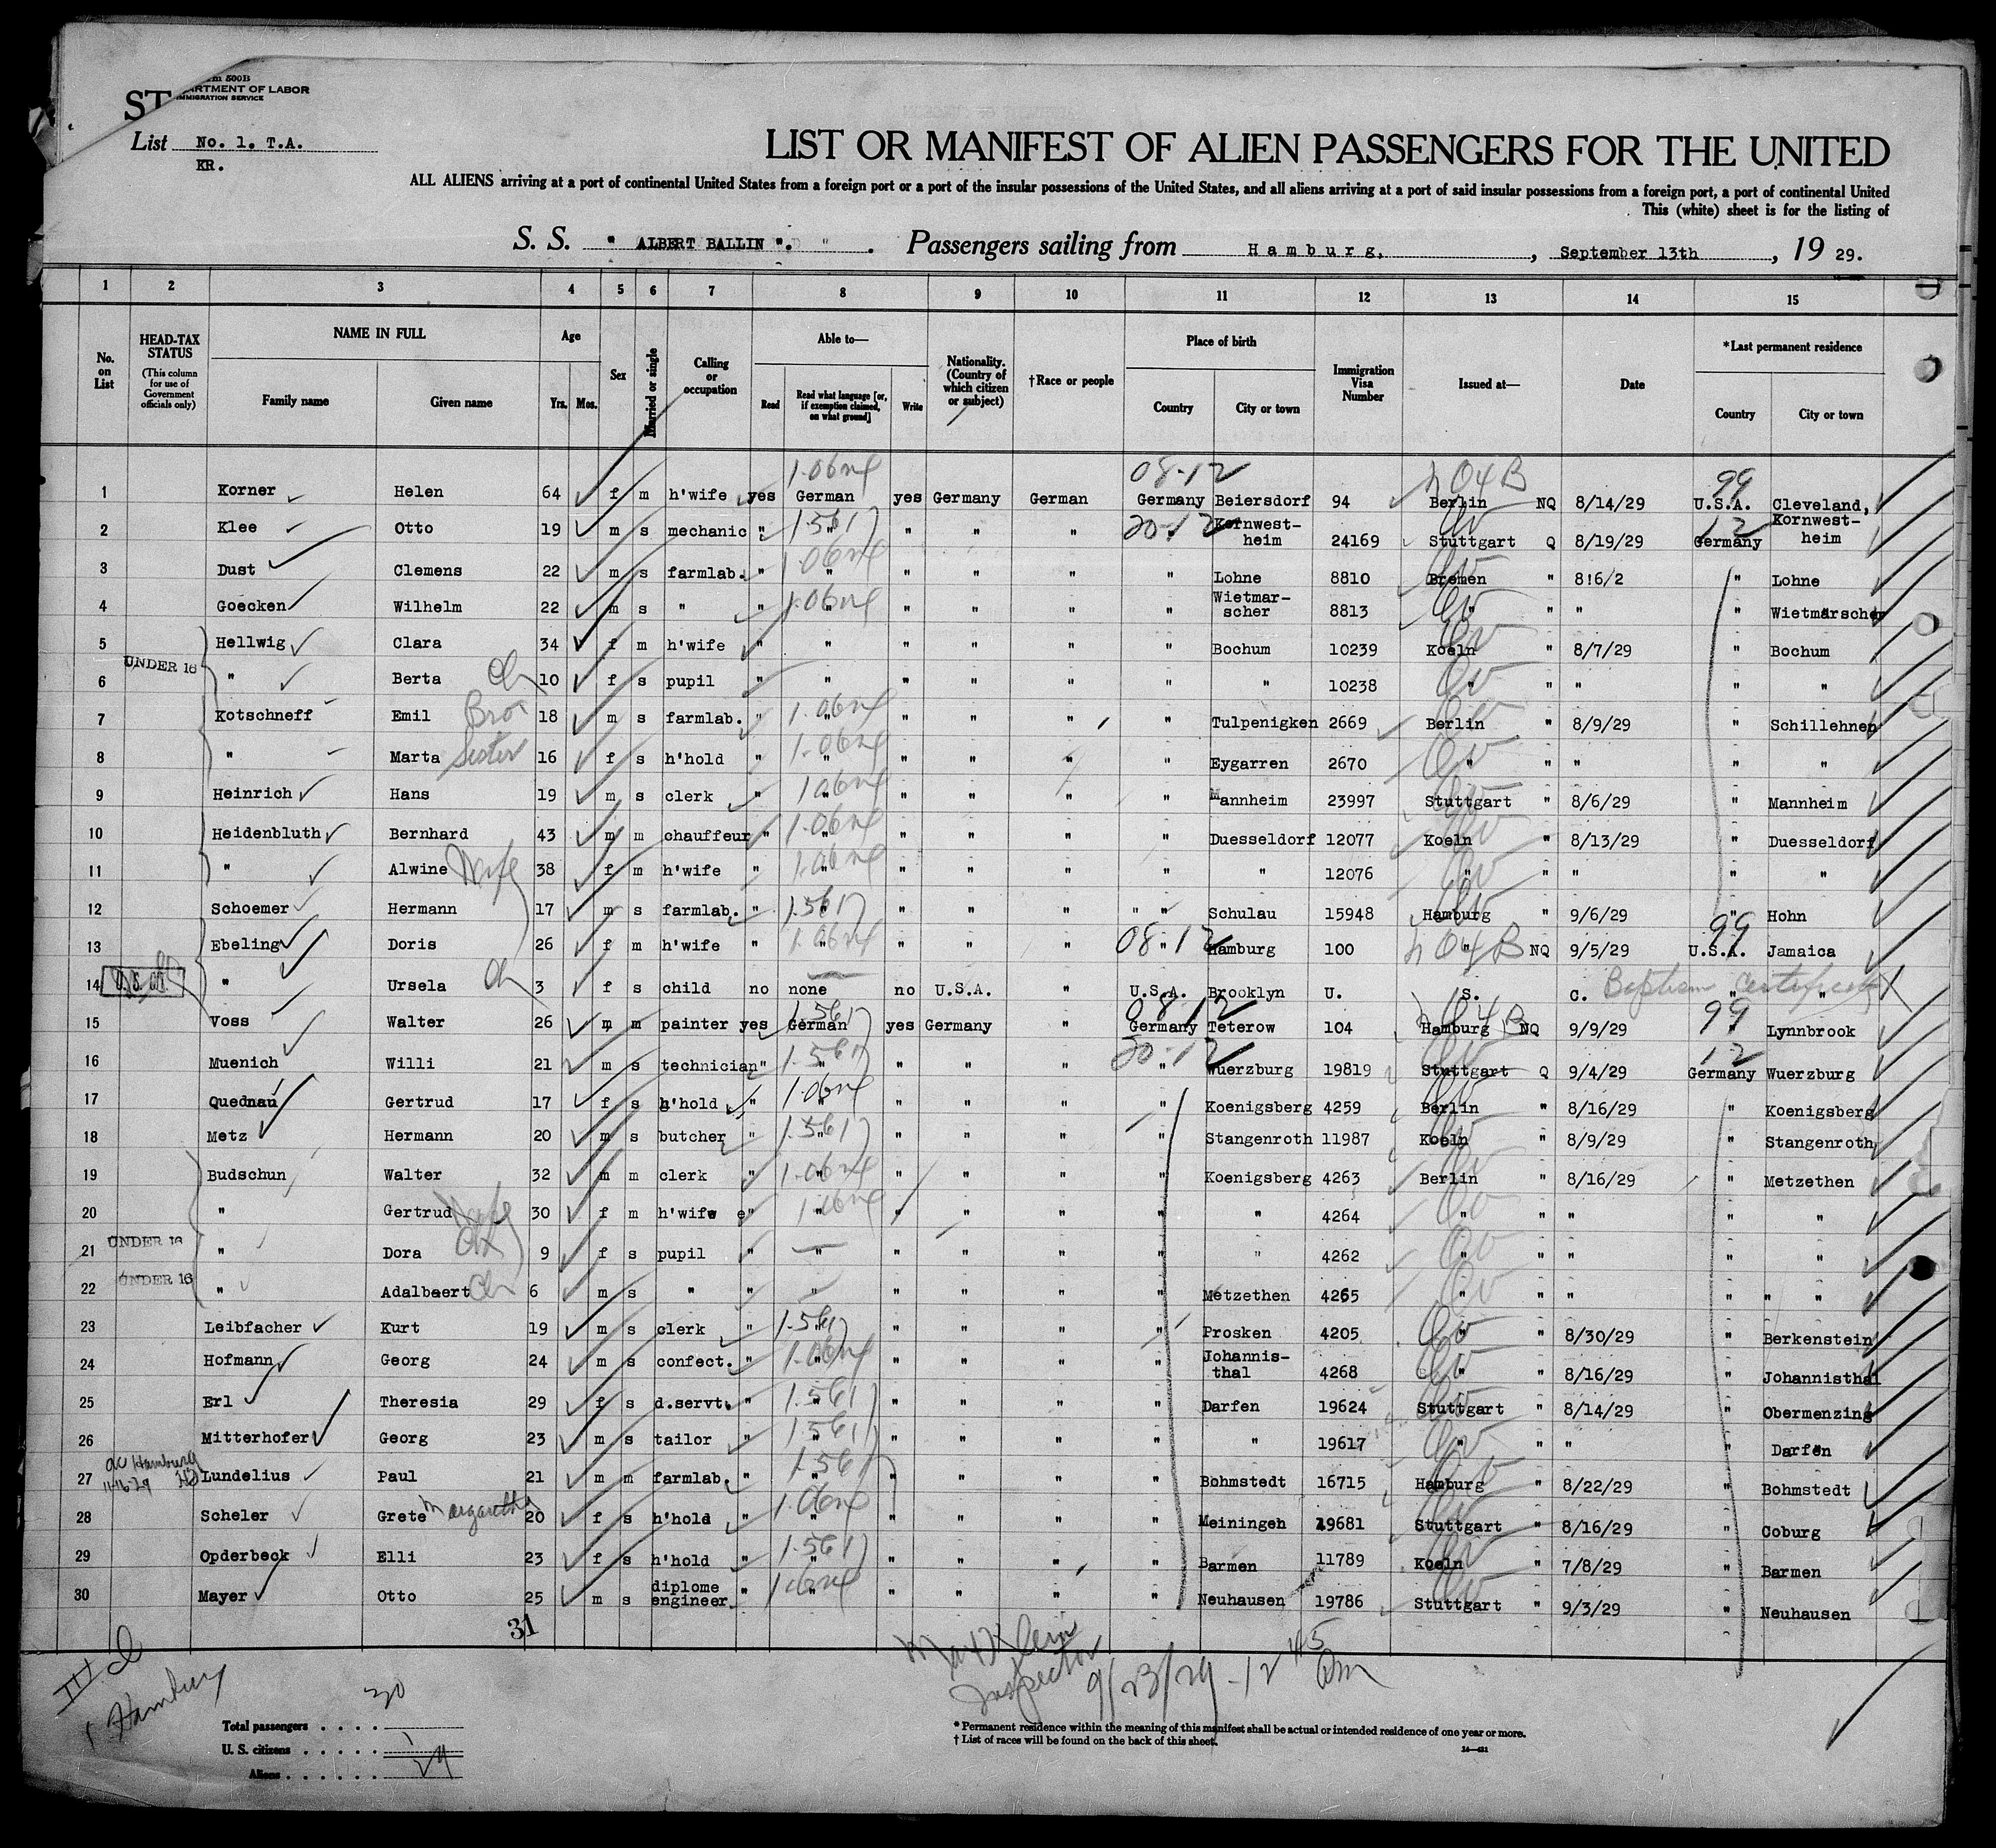 ST
rm 500B
ARTMENT OF LABOR
IMMIGRATION SERVICE
List No. 1. T.A.
KR.
LIST OR MANIFEST OF ALIEN PASSENGERS FOR THE UNITED
ALL ALIENS arriving at a port of continental United States from a foreign port or a port of the insular possessions of the United States, and all aliens arriving at a port of said insular possessions from a foreign port, a port of continental United
This (white) sheet is for the listing of
S. S. " ALBERT BALLIN ". Passengers sailing from Hamburg, , September 13th , 19 29.
1 2 3 4 5 6 7 8 9 10 11 12 13 14 15
No. on List
HEAD-TAX STATUS (This column for use of Government officials only)
NAME IN FULL
Family name Given name
Age
Yrs. Mos.
Sex
Married or single
Calling or occupation
Able to—
Read Read what language [or, if exemption claimed, on what ground] Write
Nationality. (Country of which citizen or subject)
†Race or people
Place of birth
Country City or town
Immigration Visa Number
Issued at—
Date
*Last permanent residence
Country City or town
1 Korner Helen 64 f m h'wife yes German yes Germany German Germany Beiersdorf 94 Berlin NQ 8/14/29 U.S.A. Cleveland,
2 Klee Otto 19 m s mechanic " " " " " Kornwest-heim 24169 Stuttgart Q 8/19/29 Germany Kornwest-heim
3 Dust Clemens 22 m s farmlab. " " " " " " Lohne 8810 Bremen " 8!6/2 " Lohne
4 Goecken Wilhelm 22 m s " " " " " " " Wietmar-scher 8813 " " " " Wietmarscher
5 Hellwig Clara 34 f m h'wife " " " " " " Bochum 10239 Koeln " 8/7/29 " Bochum
UNDER 16
6 " Berta Ch 10 f s pupil " " " " " " " 10238 " " " " "
7 Kotschneff Emil Bro 18 m s farmlab. " " " " " " Tulpenigken 2669 Berlin " 8/9/29 " Schillehnen
8 " Marta Sister 16 f s h'hold " " " " " " Eygarren 2670 " " " " "
9 Heinrich Hans 19 m s clerk " " " " " " Mannheim 23997 Stuttgart " 8/6/29 " Mannheim
10 Heidenbluth Bernhard 43 m m chauffeur " " " " " " Duesseldorf 12077 Koeln " 8/13/29 " Duesseldorf
11 " Alwine Wife 38 f m h'wife " " " " " " " 12076 " " " " "
12 Schoemer Hermann 17 m s farmlab. " " " " " " " Schulau 15948 Hamburg " 9/6/29 " Hohn
13 Ebeling Doris 26 f m h'wife " " " " " 08-12 " Hamburg 100 " NQ 9/5/29 99 U.S.A. Jamaica
14 " Ursela Ch 3 f s child no none no U.S.A. " U.S.A. Brooklyn U. S. C. Baptism Certificate " "
15 Voss Walter 26 m m painter yes German yes Germany " Germany Teterow 104 Hamburg NQ 9/9/29 99 " Lynnbrook
16 Muenich Willi 21 m s technician " " " " " " Wuerzburg 19819 Stuttgart Q 9/4/29 Germany Wuerzburg
17 Quednau Gertrud 17 f s h'hold " " " " " " Koenigsberg 4259 Berlin " 8/16/29 " Koenigsberg
18 Metz Hermann 20 m s butcher " " " " " " Stangenroth 11987 Koeln " 8/9/29 " Stangenroth
19 Budschun Walter 32 m m clerk " " " " " " Koenigsberg 4263 Berlin " 8/16/29 " Metzethen
20 " Gertrud Wife 30 f m h'wife e" " " " " " " 4264 " " " " "
UNDER 16
21 " Dora Ch 9 f s pupil " " " " " " 4262 " " " " "
UNDER 16
22 " Adalbaert Ch 6 m s " " " " " " " Metzethen 4265 " " " " " "
23 Leibfacher Kurt 19 m s clerk " " " " " " Prosken 4205 " " 8/30/29 " Berkenstein
24 Hofmann Georg 24 m s confect. " " " " " " Johannis-thal 4268 " " 8/16/29 " Johannisthal
25 Erl Theresia 29 f s d.servt. " " " " " " Darfen 19624 Stuttgart " 8/14/29 " Obermenzing
26 Mitterhofer Georg 23 m s tailor " " " " " " " 19617 " " " " Darfen
27 Lundelius Paul 21 m m farmlab. " " " " " " Bohmstedt 16715 Hamburg " 8/22/29 " Bohmstedt
28 Scheler Grete Margarethe 20 f s h'hold " " " " " " Meiningen 19681 Stuttgart " 8/16/29 " Coburg
29 Opderbeck Elli 23 f s h'hold " " " " " " Barmen 11789 Koeln " 7/8/29 " Barmen
30 Mayer Otto 25 m s diplome engineer. " " " " " " Neuhausen 19786 Stuttgart " 9/3/29 " Neuhausen
31
Inspector 9/23/29 - 12 45 am
30
Total passengers . . . .
U. S. citizens . . . . . 1
Aliens . . . . . . 29
* Permanent residence within the meaning of this manifest shall be actual or intended residence of one year or more.
† List of races will be found on the back of this sheet.